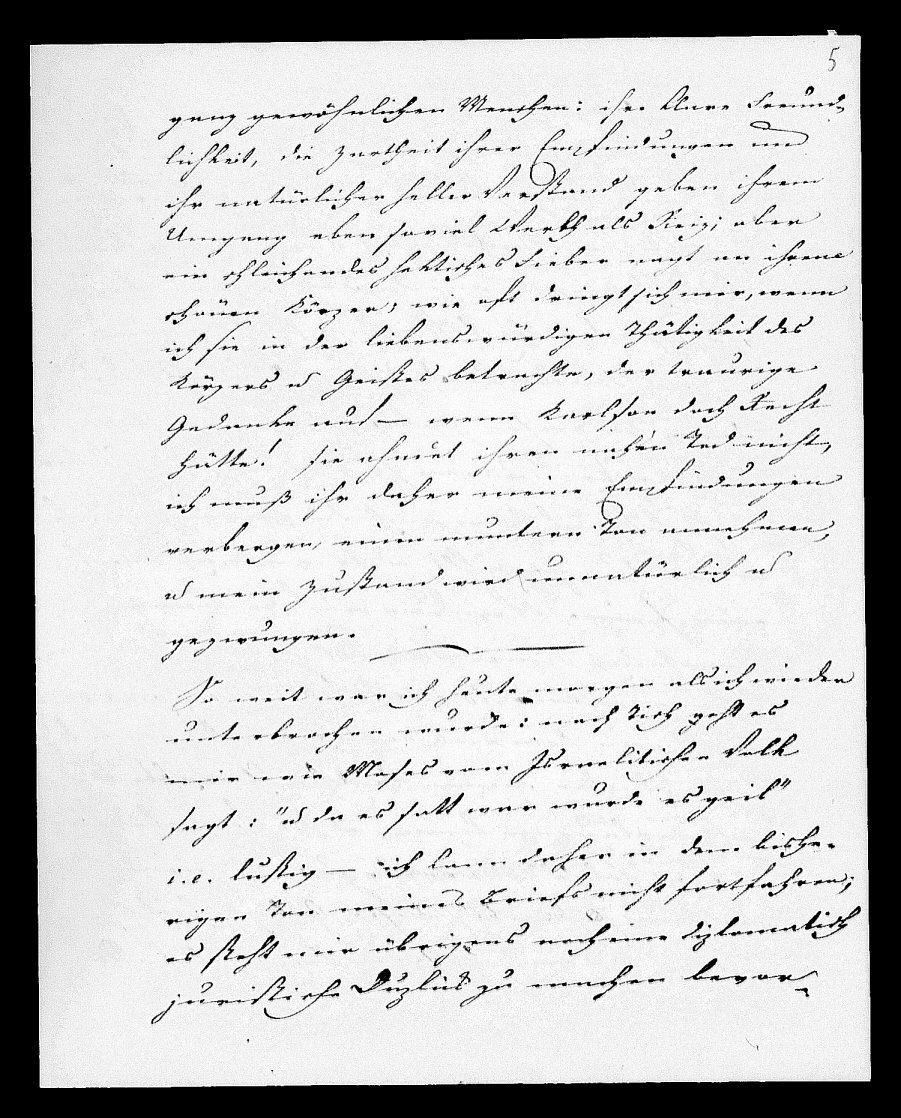 5
ganz gewöhnlichen Menschen: ihre Freund-
lichkeit, die Zartheit ihrer Empfindungen und
ihr natürlicher heller Verstand geben ihrem
Umgang eben soviel Werth als Reiz; aber
ein schleichendes hektisches Fieber nagt an ihrem
schönen Körper; wie oft dringt sich mir, wenn
ich sie in der liebenswürdigen Thätigkeit des
Körpers u Geistes betrachte, der traurige
Gedanke auf — wenn Karlson doch Recht
hätte! sie ahndet ihren nahen Tod nicht,
ich muß ihr daher meine Empfindungen
verbergen, einen muntern Ton annehmen,
u mein Zustand wird unnatürlich u
gezwungen.
So weit war ich heute morgen als ich wieder
unterbrochen wurde: nach Tisch geht es
mir wie Moses vom Israelitischen Volk
sagt: "u da es satt war wurde es geil"
i.e. lustig — ich kann daher in dem bishe-
rigen Ton meines Briefs nicht fortfahren;
es steht mir übrigens noch eine diplomatisch
juristische zu machen bevor